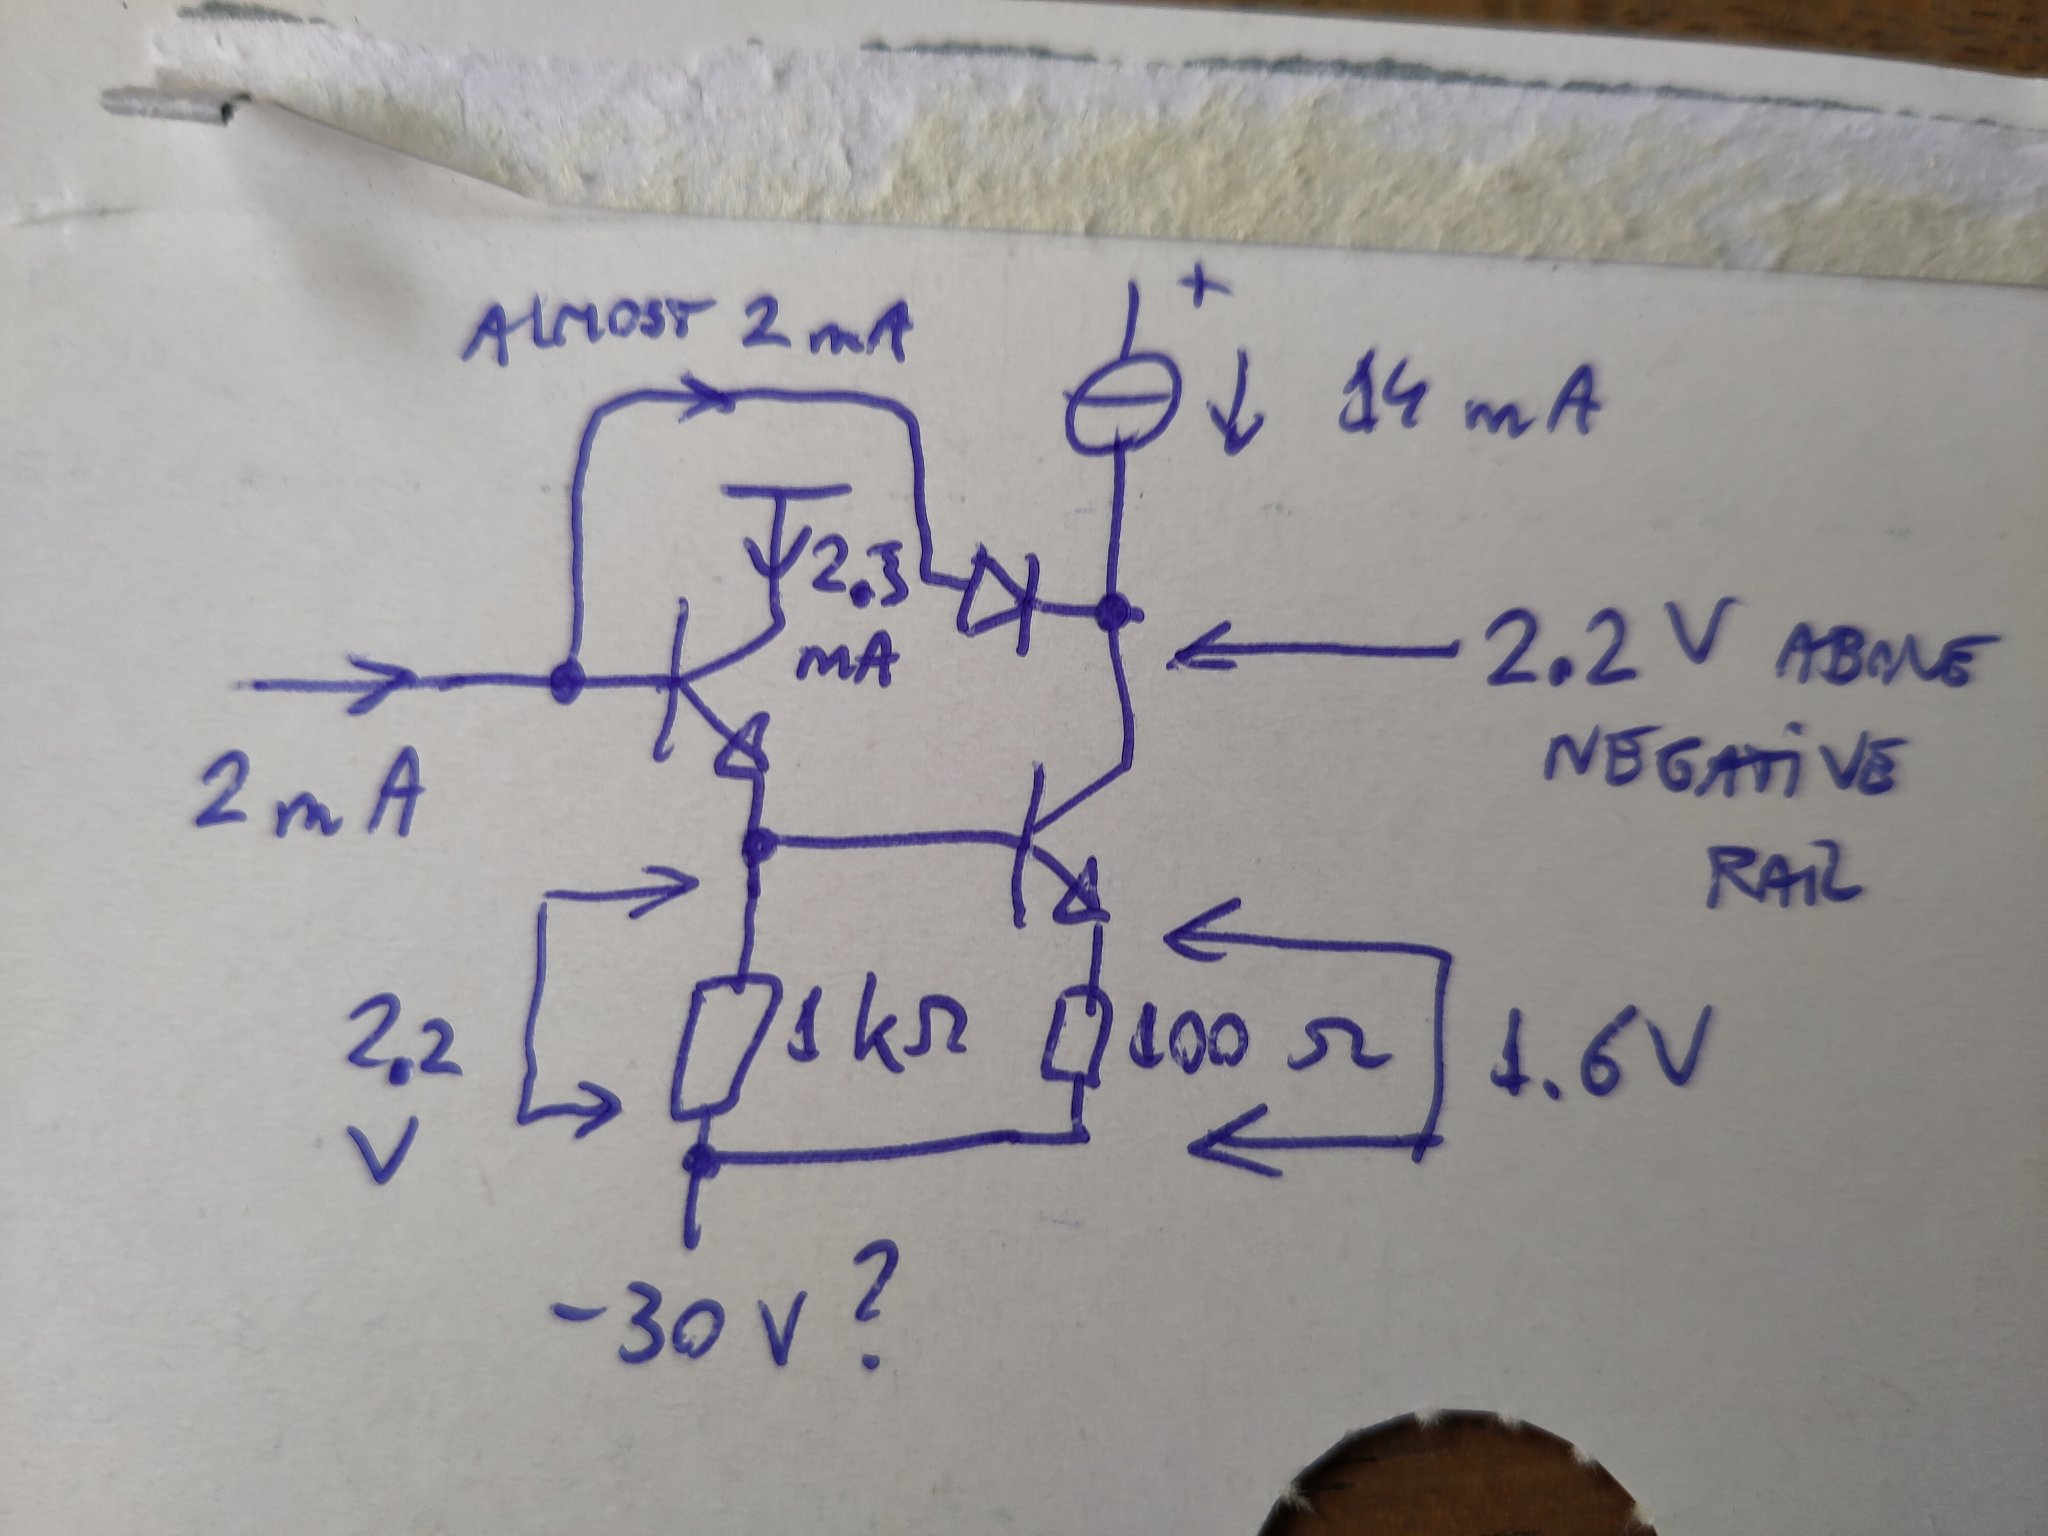 ALMOST 2 mA
+
14 mA
2.3
mA
2 mA
2.2 V ABOVE
NEGATIVE
RAIL
2.2
V
1 kΩ
100 Ω
1.6V
-30 V ?